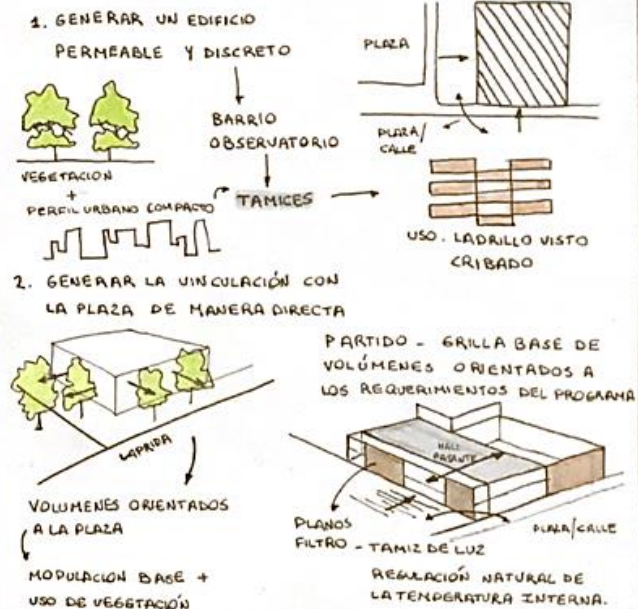 1. GENERAR UN EDIFICIO
PERMEABLE Y DISCRETO
BARRIO
OBSERVATORIO
VEGETACION
+
PERFIL URBANO COMPACTO
TAMICES
PLAZA
PLAZA/
CALLE
USO. LADRILLO VISTO
CRIBADO
2. GENERAR LA VINCULACIÓN CON
LA PLAZA DE MANERA DIRECTA
LAPRIDA
VOLUMENES ORIENTADOS
A LA PLAZA
MODULACION BASE +
USO DE VEGETACIÓN
PARTIDO - GRILLA BASE DE
VOLÚMENES ORIENTADOS A
LOS REQUERIMIENTOS DEL PROGRAMA
HALL
PASANTE
PLANOS
FILTRO - TAMIZ DE LUZ
PLAZA/CALLE
REGULACIÓN NATURAL DE
LA TEMPERATURA INTERNA.